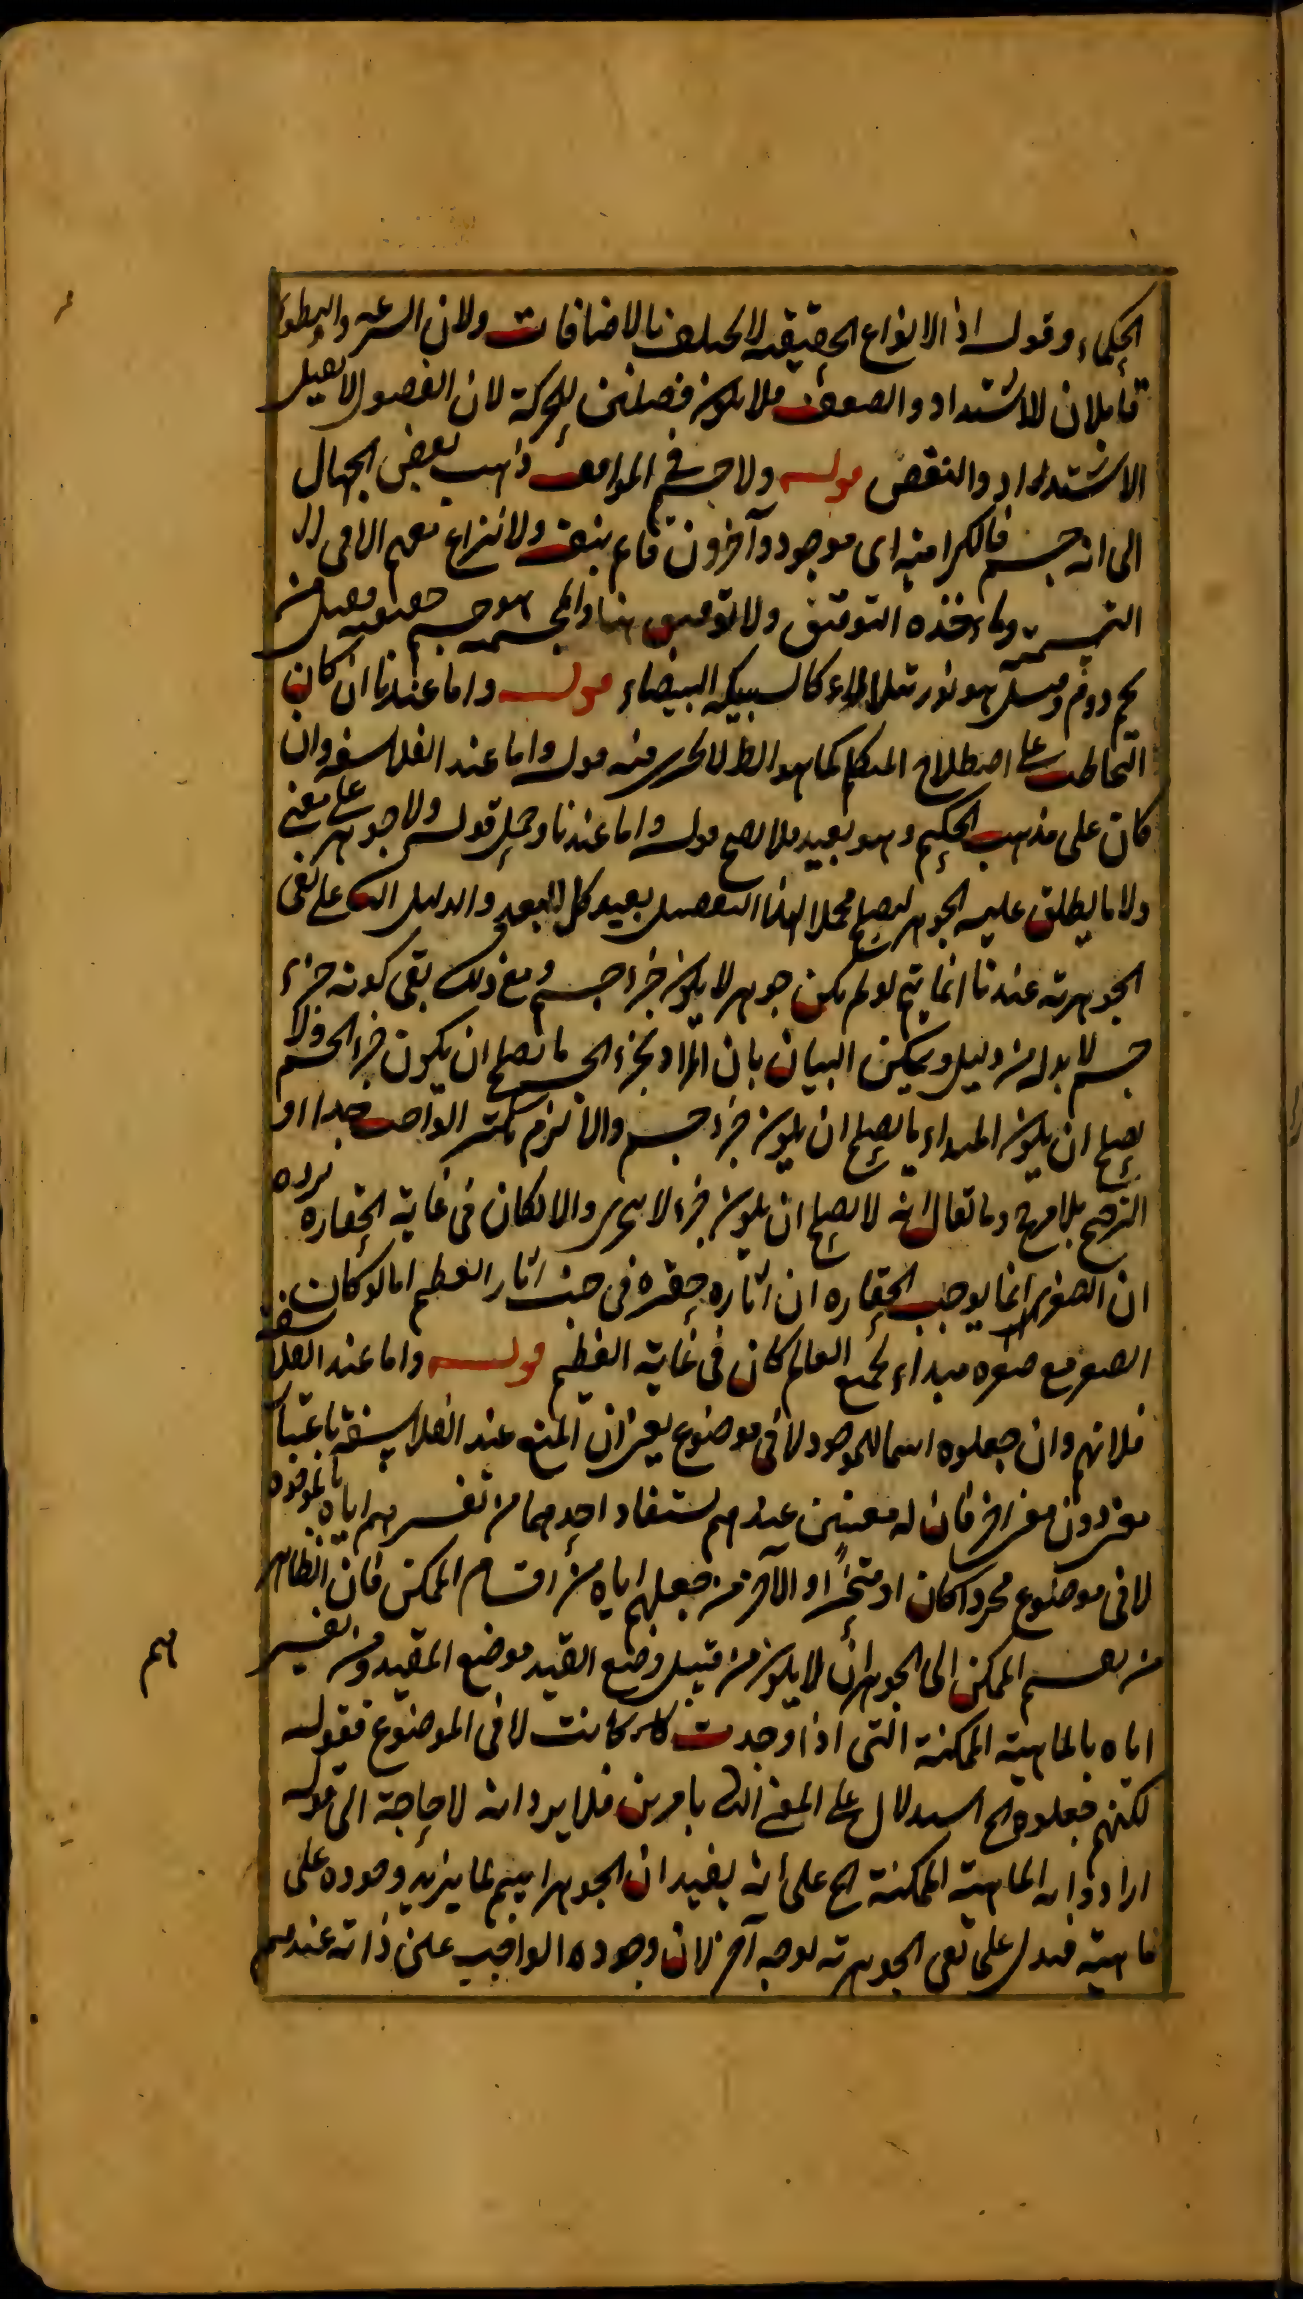 الحكماء وقوله اذ الانواع الحقيقية لا تختلف بالاضافات ولان السرعه والبطوء
قابلان للاشتداد والضعف فلا يكون فصلين للحركة لان الفصول لا تقبل
الاشتداد والتنقص قوله ولا جسم في المواقف ذهب بعض الجهال
الى انه جسم فالكرامية اى موجود وآخرون قائم بنفسه ولا نزاع معهم الا فى
التسمية وماخذه التوقيف ولا توقيف هنا والمجسمة هو جسم حقيقة فقيل من
لحم ودم وقيل هو نور يتلالاء كالسبيكة البيضاء قوله واما عندنا ان كان
التخاطب على اصطلاح المتكلم كما هو الظ منه قوله واما عند الفلاسفه وان
كان على مذهب الحكيم وهو بعيد فلا يصح قوله واما عندنا وحمل قوله ولا جوهر على معنى
ولا ما يطلق عليه الجوهر ليصلح محملا لهذا التفصيل بعيد كل البعد والدليل على نفى
الجوهرية عندنا انما يتم لو لم يكن جوهر لا يكون جزا جسم ومع ذلك بقى كونه جزء
جسم لا بد له من دليل ويمكن البيان بان المراد بجزء الجسم ما يصلح ان يكون جزا لجسم ولا
يصلح ان يكون المبداء ما يصلح ان يكون جزء جسم والا لزم تكثر الواجب جدا او
الترجيح بلا مرجح وما يقال انه لا يصلح ان يكون جزء لا يتجزى والا لكان فى غاية الحقارة يرده
ان الصغر انما يوجب الحقاره ان اثاره حقره فى جنب اثار العظيم اما لو كان
الصغر مع صغره مبداء لجميع العالم كان فى غاية العظم قوله واما عند الفلاسفه
فلانهم وان جعلوه اسما للموجود لا فى موضوع يعنى ان المنع عند الفلاسفة باعتبار
معنى دون معنى اخر فان له معنيين عندهم يستفاد احدهما من تفسيرهم اياه بالموجود
لا فى موضوع مجردا كان او متحيزا والآخر من جعلهم اياه من اقسام الممكن فان الظاهر
من تقسيم الممكن الى الجوهر ان لا يكون من قبيل وضع القيد موضع المقيد ومن تفسيرهم
اياه بالماهية الممكنة التى اذا وجدت كانت لا فى الموضوع فقوله
لكنهم جعلوه الخ استدلال على المعنى بامرين فلا يرد انه لا حاجة الى قوله
ارادوا به الماهية الممكنة الخ على انه يفيد ان الجوهر انما يزيد وجوده على
ماهيته فيدل على نفى الجوهرية لوجه آخر لان وجود الواجب عين ذاته عندهم